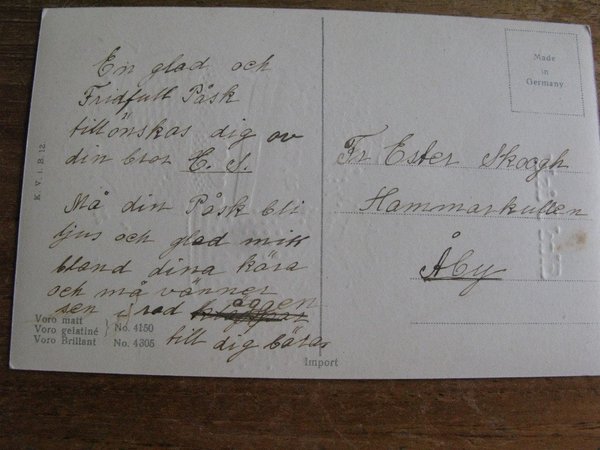 En glad och
Fridfull Påsk
tillönskas dig av
din bror E. S.
Må din Påsk bli
ljus och glad mitt
bland dina kära
och må vänner
sen i rad äggen
till dig bära
K. V. i. B. 12.
Voro matt
Voro gelatiné } No. 4150
Voro Brillant No. 4305
Import
Made
in
Germany
Fr Ester Skoogh
Hammarkullen
Åby